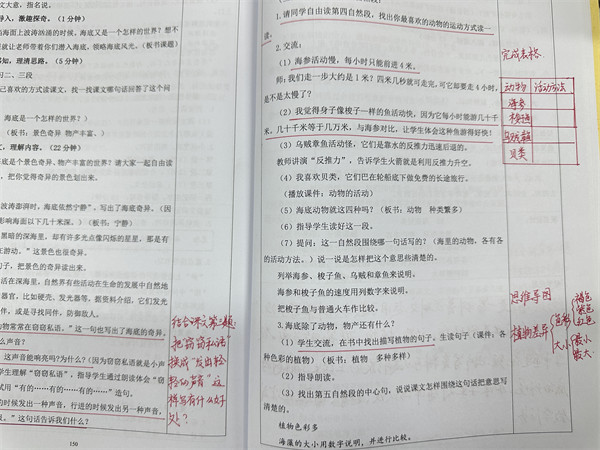 文大意，指名说。
导入，激趣探奇。（1 分钟）
当海面上波涛汹涌的时候，海底又是一个怎样的世界？想不
在就让老师带着你们潜入海底，领略海底风光。（板书课题）
感知，理清思路。（5 分钟）
习二、三段
己喜欢的方式读课文，找一找课文哪句话回答了这个问
海底是一个怎样的世界？）
（板书：景色奇异 物产丰富。）
文，理解内容。（22 分钟）
底是个景色奇异、物产丰富的世界？请大家一起自由读
，把你觉得奇异的景色划出来。
波涛澎湃时，海底依然宁静”，写出了海底奇异。（因
影响海面以下几十米深。）（板书：宁静）
黑暗的深海里，却有许多光点像闪烁的星星，那是有
在游动。”这景色也很奇异。
句子，把景色的奇异读出来。
活在深海里，自然界有些动物在生命的发展中自然地
器官，比如硬壳、发光器等。据资料介绍，它们发光
伴，或是寻找同伴，防御敌人。
动物常常在窃窃私语”，这一句也写出了海底的奇异。
么声音？
这声音能响亮吗?为什么?（因为窃窃私语就是小声
学生理解“窃窃私语”，指导学生通过朗读体会“窃
试用“有的……有的……有的……”造句。
的时候发出一种声音，行进的时候发出另一种声音，
报。”这句话告诉我们什么？
结合课文第二题
把“窃窃私语”
换成“发出轻
轻的声音”这
样写有什么好
处？
150
1.请同学自由读第四自然段，找出你最喜欢的动物的运动方式读一
读。
2.交流：
（1）海参活动慢，每小时只能前进 4 米。
师：我们走一大步约是 1 米？四米几秒就可走完，可它却要走 4 小时，
是不是太慢了？
（2）我觉得身子像梭子一样的鱼活动快，因为它每小时能游几十千
米，几十千米等于几万米，与海参对比，让学生体会这种鱼游得好快!
（3）乌贼章鱼活动怪，它们是靠水的反推力迅速后退的。
教师讲演“反推力”，告诉学生火箭就是利用反推力升空。
（4）我喜欢贝类，它们巴在轮船底下做免费的长途旅行。
（播放课件：动物的活动）
（5）海底动物就这四种吗？（板书：动物 种类繁多）
（6）指导学生读好这一段。
（7）提问：这一自然段围绕哪一句话写的？（海里的动物，各有各
的活动方法。）说一说是怎样把这个意思些清楚的。
列举海参、梭子鱼、乌贼和章鱼来说明。
海参和梭子鱼的速度用列数字来说明。
把梭子鱼与普通火车作比较。
3.海底除了动物，物产还有什么？
（1）学生交流，在书中找出描写植物的句子，生读句子（课件：各
种色彩的植物）（板书：植物 多种多样）
（2）指导朗读。
（3）找出第五自然段的中心句，说说课文怎样围绕这句话把意思写
清楚的。
植物色彩多
海藻的大小用数字说明，并进行比较。
完成表格
动物 活动方法
海参
梭子鱼
乌贼章鱼
贝类
思维导图
植物差异
色彩
褐色
紫色
红色
大小
最小
最大